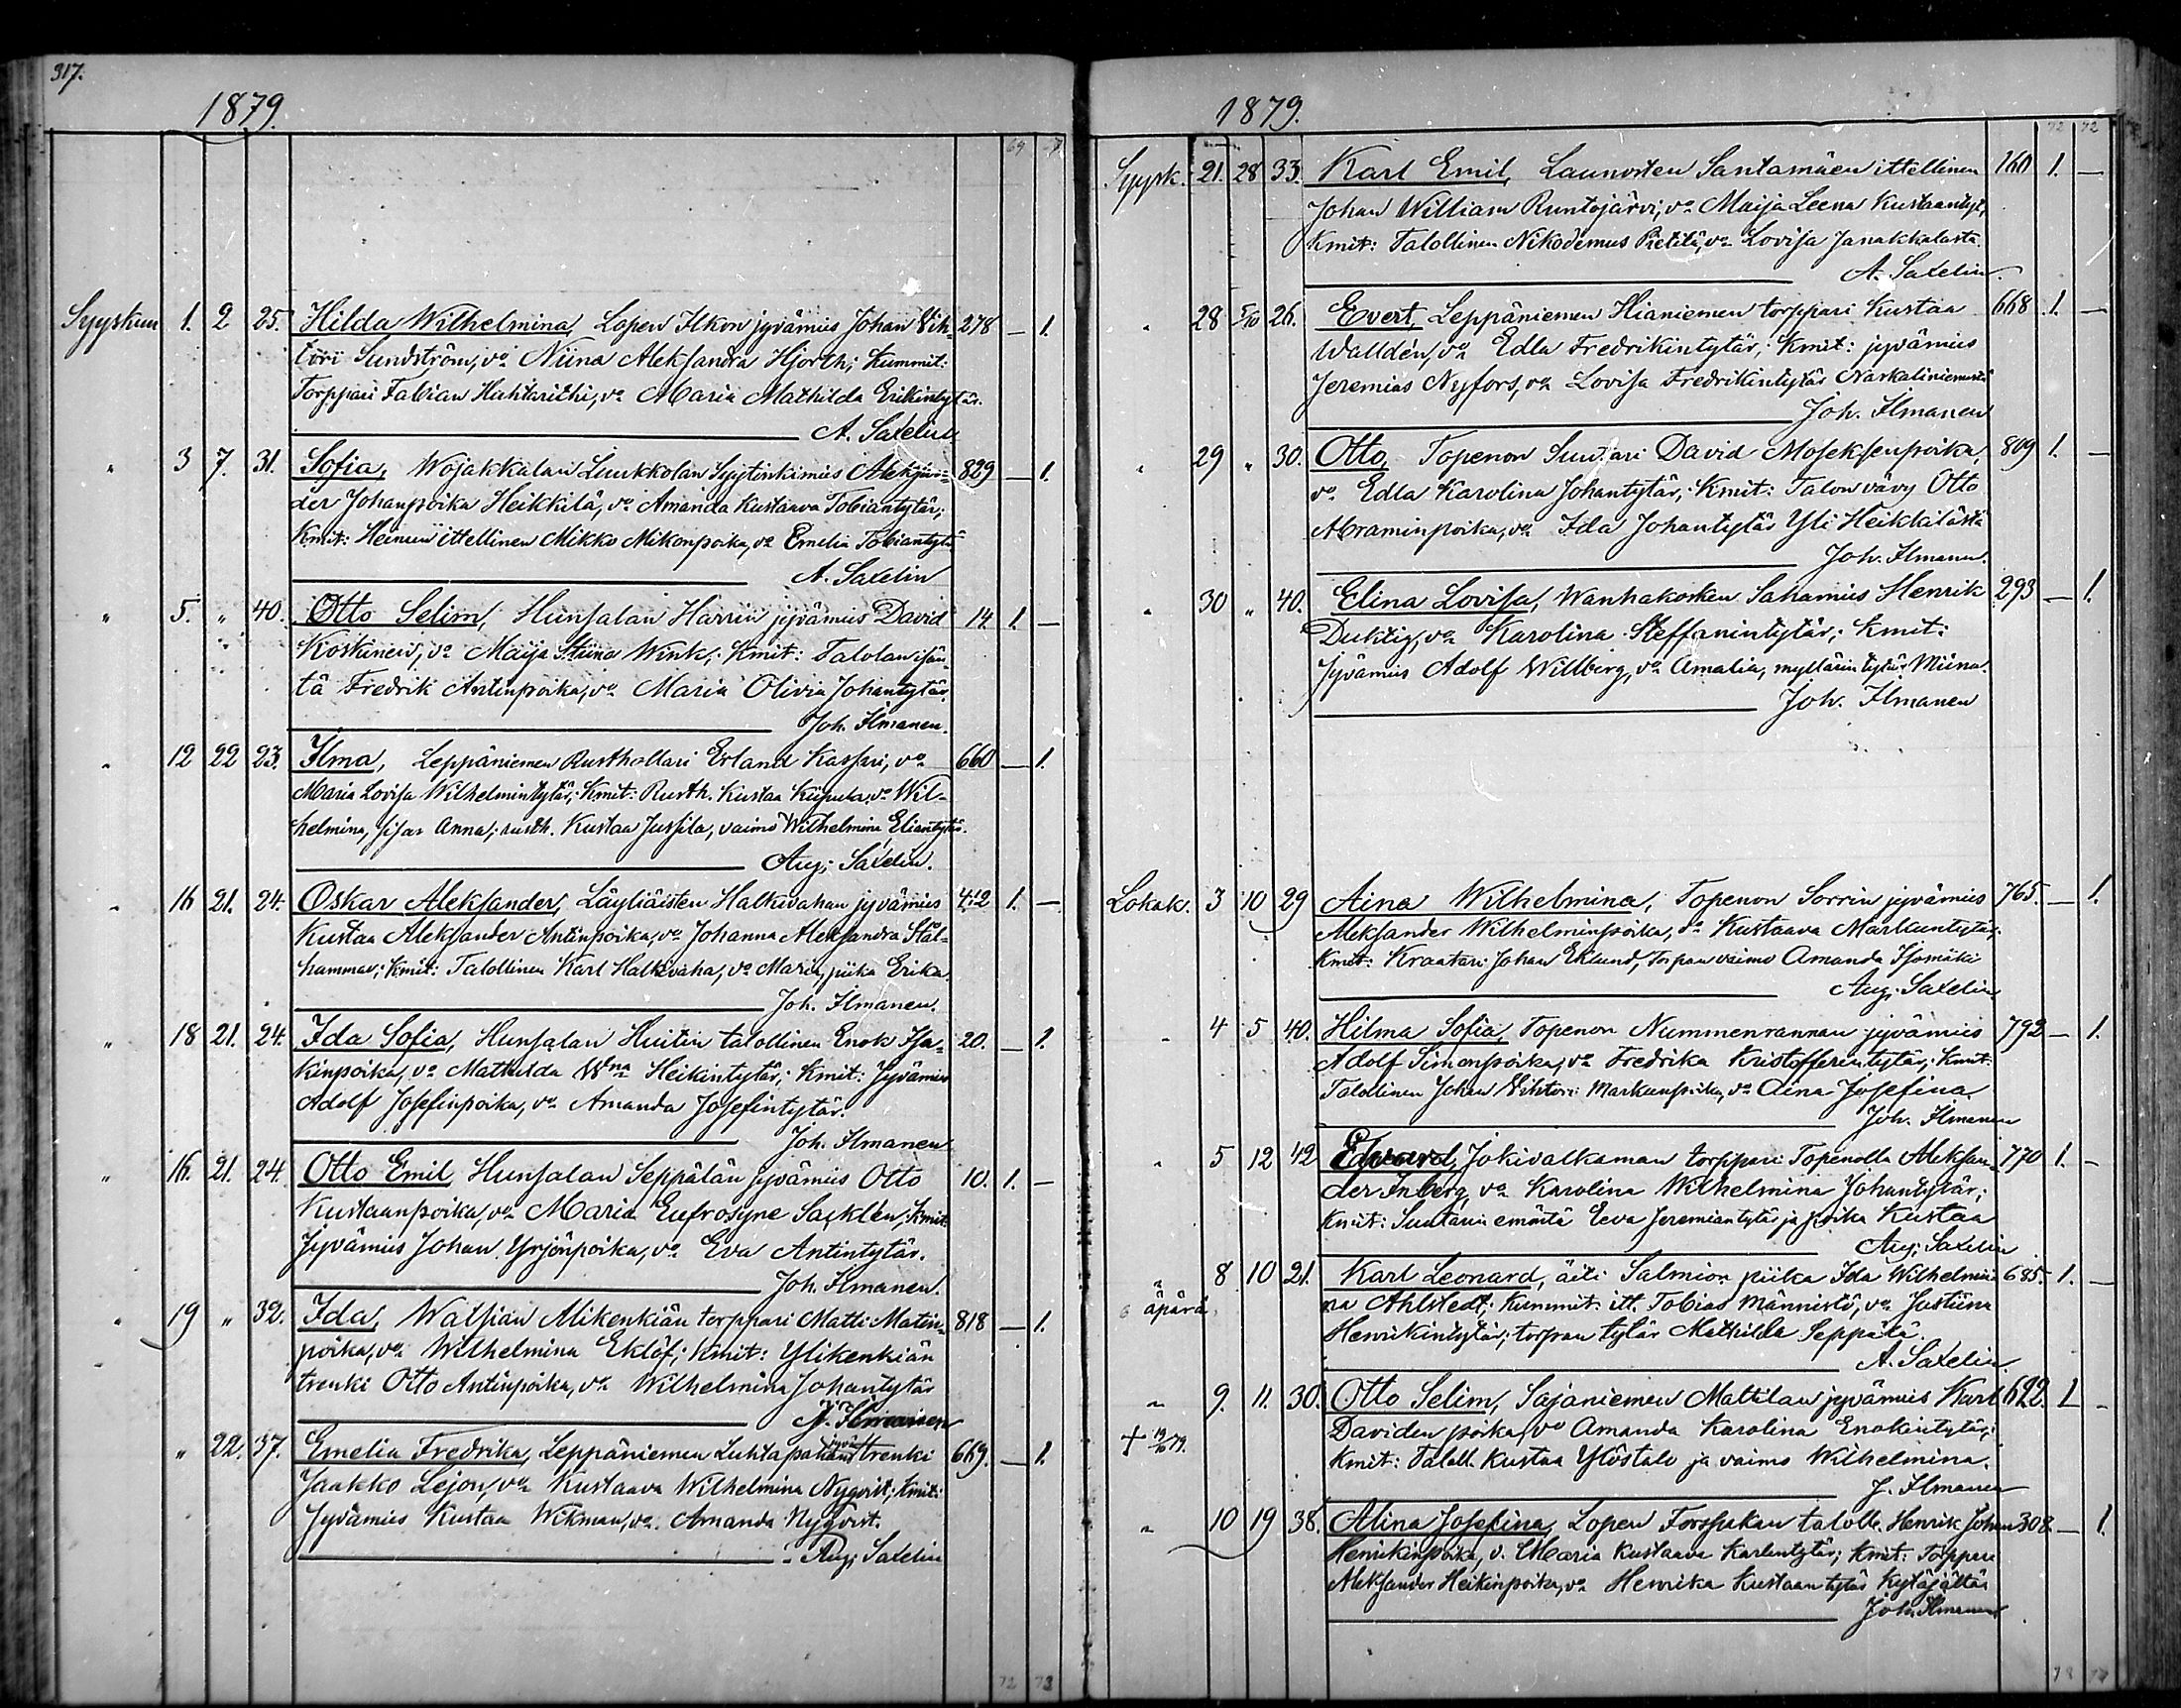 317.
1879.
69
Syyskuu 1. 2 25. Hilda Wilhelmina, Lopen Ilkon jyvämies Johan Vih- 278 — 1.
töri Sundström, vo Niina Aleksandra Hjorth; Kummit:
Torppari Fabian Huhtariihi, vo Maria Mathilda Erikintytär.
A. Saxelin
" 3 7. 31. Sofia, Wojakkalan Luukkolan Syytinkimies Aleksan= 829 — 1.
der Johanpoika Heikkilä, vo Amanda Kustaava Tobiantytär;
Kmit: ittellinen Mikko Mikonpoika, vo Emelia Tobiantytä
A. Saxelin
" 5. " 40. Otto Selim, Hunsalan Harrin jyvämies David 14 1. —
Koskinen, vo Maija Stiina Wink; Kmit: Talolan isän
tä Fredrik Antinpoika, vo Maria Olivia Johantytär.
Joh. Ilmanen.
" 12 22 23. Ilma, Leppäniemen Rusthollari Erland Kassari, vo 660 — 1.
Maria Lovisa Wilhelmintytär; Kmit: Rusth. Kustaa vo Wil-
helmina, sisar Anna; rusth. Kustaa Jussila, vaimo Wilhelmina Eliantytär.
Aug. Saxelin.
" 16 21. 24. Oskar Aleksander, Läyliäisten Halkivahan jyvämies 412 1. —
Kustaa Aleksander Antinpoika, vo Johanna Aleksandra Stål-
hammar; Kmit: Talollinen Karl Halkivaha, vo Maria, piika Erika.
Joh. Ilmanen.
" 18 21. 24. Ida Sofia, Hunsalan Huitin talollinen Enok Isa- 20. — 1.
kinpoika, vo Mathilda Wna Heikintytär; Kmit: Jyvämies
Adolf Josefinpoika, vo Amanda Josefintytär.
Joh. Ilmanen
" 16. 21. 24. Otto Emil, Hunsalan Seppälän jyvämies Otto 10. 1. —
Kustaanpoika, vo Maria Eufrosyne Sacklén; Kmit:
Jyvämies Johan Yrjönpoika, vo Eva Antintytär.
Joh. Ilmanen.
" 19 " 32. Ida, Watsian Alikenkiän torppari Matti Matin- 818 — 1.
poika, vo Wilhelmina Eklöf; Kmit: Ylikenkiän
trenki Otto Antinpoika, vo Wilhelmina Johantytär
J. Ilmanen
" 22. 37. Emelia Fredrika, Leppäniemen trenki 669. — 1.
Jaakko Lejon, vo Kustaava Wilhelmina Nyqvist; Kmit:
Jyvämies Kustaa Wikman, vo Amanda Nyqvist.
Aug. Saxelin
72 73
1879.
72 72
Syysk. 21. 28 33. Karl Emil, Launosten Santamäen ittellinen 160 1. —
Johan William Runtojärvi, vo Maija Leena Kustaantyt,
Kmit: Talollinen Nikodemus Pietilä, vo Lovisa Janakkalasta.
A. Saxelin.
" 28 5/10 26. Evert, Leppäniemen Hianiemen torppari Kustaa 668 1. —
Walldén, vo Edla Fredrikintytär; Kmit: jyvämies
Jeremias Nyfors, vo Lovisa Fredrikintytär Naskaliniemestä
Joh. Ilmanen
" 29 " 30. Otto, Topenon Suutari David Moseksenpoika, 809 1. —
vo Edla Karolina Johantytär; Kmit: Talon vävy Otto
Abraminpoika, vo Ida Johantytär Yli Heikkilästä
Joh. Ilmanen.
" 30 " 40. Elina Lovisa, Wanhakosken Sahamies Henrik 293 — 1.
Duktig, vo Karolina Steffanintytär; Kmit:
Jyvämies Adolf Willberg, vo Amalia, myllärin tytär Miina.
Joh. Ilmanen
Lokak. 3 10 29 Aina Wilhelmina, Topenon Sorrin jyvämies 765. — 1.
Aleksander Wilhelminpoika, vo Kustaava Markuntytär;
Kmit: Kraatari Johan Eklund, torpan vaimo Amanda Isomäki
Aug. Saxelin
" 4 5 40. Hilma Sofia, Topenon Nummenrannan jyvämies 792 — 1.
Adolf Simonpoika, vo Fredrika Kristofferintytär; Kmit:
Talollinen Johan Vihtori Markunpoika, vo Aina Josefina.
Joh. Ilmanen
" 5 12 42 Edvard, Jokivalkaman torppari Topenolla Aleksan- 770 1. —
der Inberg, vo Karolina Wilhelmina Johantytär;
Kmit: Suutarin emäntä Eeva Jeremiantytär ja poika Kustaa
Aug. Saxelin
" 8 10 21. Karl Leonard, äiti Salmion piika Ida Wilhelmii 685. 1. —
äpärä. na Ahlstedt; Kummit: itt. Tobias Männistö, vo Justiina
Henrikintytär; torpan tytär Mathilda Seppälä.
A. Saxelin
" 9. 11. 30. Otto Selim, Sajaniemen Mattilan jyvämies Karl 622. 1 —
+ 19/10 79. Davidin poika, vo Amanda Karolina Enokintytär;
Kmit: Taloll. Kustaa Ylöstalo ja vaimo Wilhelmina.
J. Ilmanen
" 10 19 38. Alina Josefina, Lopen Forspakan taloll. Henrik Johan 308. — 1.
Henrikinpoika, v. Maria Kustaava Karlintytär; Kmit: Torppari
Aleksander Heikinpoika, vo Henrika Kustaantytär Kytäjältä
Joh. Ilmanen